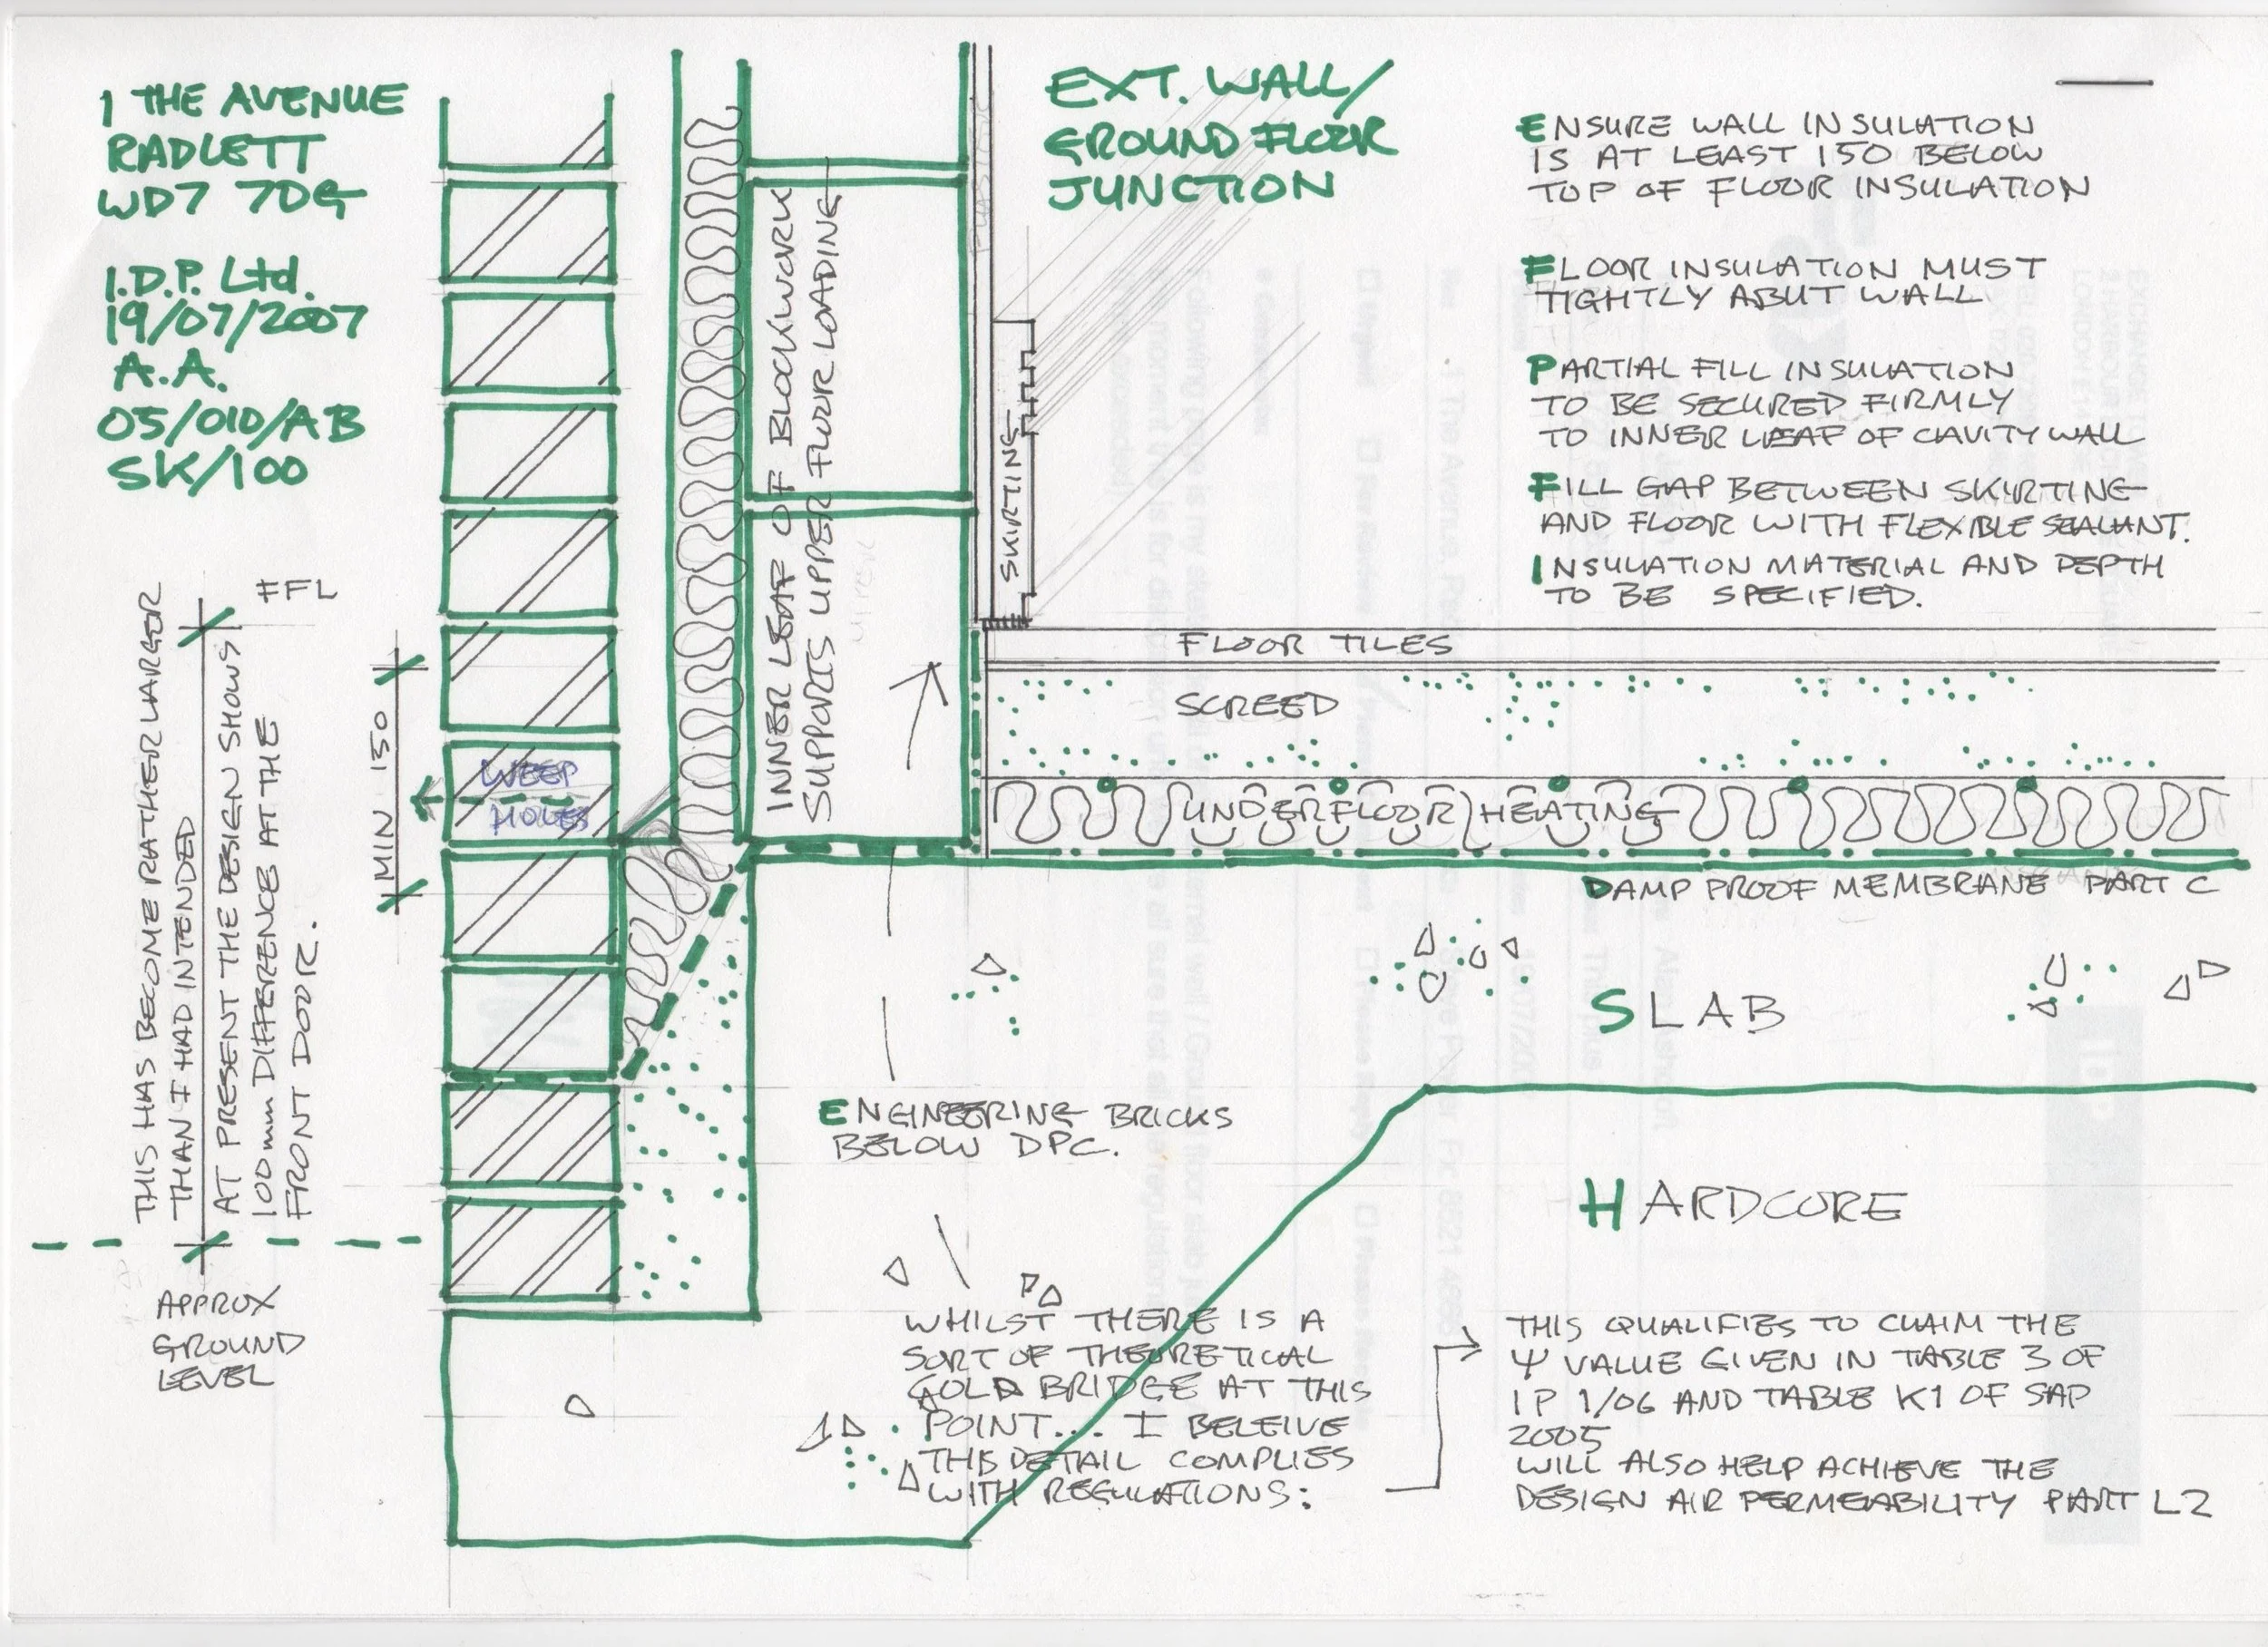 1 THE AVENUE
RADLETT
WD7 7DG
I.D.P. Ltd.
19/07/2007
A.A.
05/010/AB
SK/100
EXT. WALL/
GROUND FLOOR
JUNCTION
ENSURE WALL INSULATION
IS AT LEAST 150 BELOW
TOP OF FLOOR INSULATION
FLOOR INSULATION MUST
TIGHTLY ABUT WALL
PARTIAL FILL INSULATION
TO BE SECURED FIRMLY
TO INNER LEAF OF CAVITY WALL
FILL GAP BETWEEN SKIRTING
AND FLOOR WITH FLEXIBLE SEALANT.
INSULATION MATERIAL AND DEPTH
TO BE SPECIFIED.
INNER LEAF OF BLOCKWORK
SUPPORTS UPPER FLOOR LOADING
SKIRTING
FFL
THIS HAS BECOME RATHER LARGER
THAN I HAD INTENDED
AT PRESENT THE DESIGN SHOWS
100mm DIFFERENCE AT THE
FRONT DOOR.
MIN 150
WEEP
HOLES
FLOOR TILES
SCREED
UNDERFLOOR HEATING
DAMP PROOF MEMBRANE PART C
SLAB
ENGINEERING BRICKS
BELOW DPC.
HARDCORE
APPROX
GROUND
LEVEL
WHILST THERE IS A
SORT OF THEORETICAL
COLD BRIDGE AT THIS
POINT... I BELEIVE
THIS DETAIL COMPLIES
WITH REGULATIONS:
THIS QUALIFIES TO CLAIM THE
Ψ VALUE GIVEN IN TABLE 3 OF
IP 1/06 AND TABLE K1 OF SAP
2005
WILL ALSO HELP ACHIEVE THE
DESIGN AIR PERMEABILITY PART L2